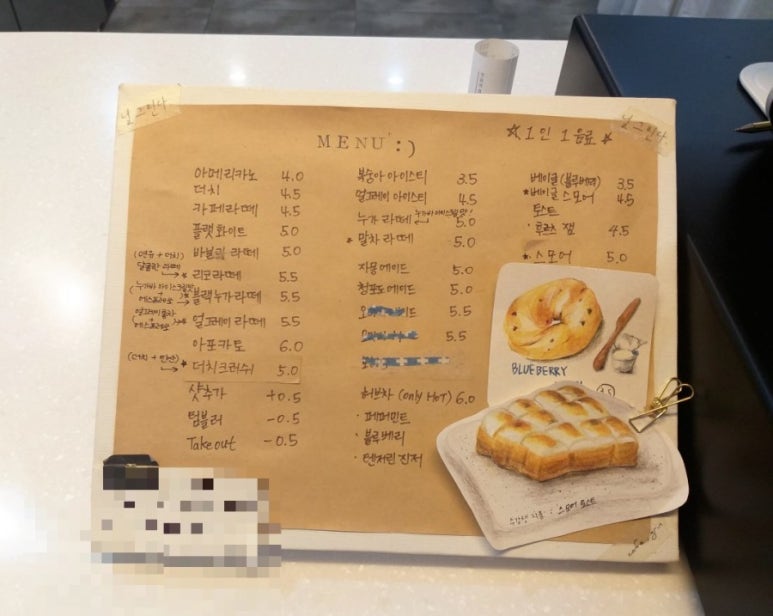 MENU :)
☆ 1인 1음료 ☆
아메리카노 4.0
더치 4.5
카페라떼 4.5
플랫화이트 5.0
바닐라 라떼 5.0
(연유 + 더치)
달콤한 라떼
리코라떼 5.5
블랙누가라떼 5.5
에스프레소
얼그레이라떼 5.5
에스프레소
아포카토 6.0
더치크러쉬 5.0
샷추가 +0.5
텀블러 -0.5
Take out -0.5
복숭아 아이스티 3.5
얼그레이 아이스티 4.5
누가 라떼 5.0
* 말차 라떼 5.0
자몽에이드 5.0
청포도에이드 5.0
5.5
5.5
허브차 (only HoT) 6.0
· 페퍼민트
· 블루베리
· 텐저린 진저
베이글(블루베리) 3.5
*베이글 스모어 4.5
토스트
· 후르츠 잼 4.5
* 스모어 5.0
BLUEBERRY
스모어 토스트